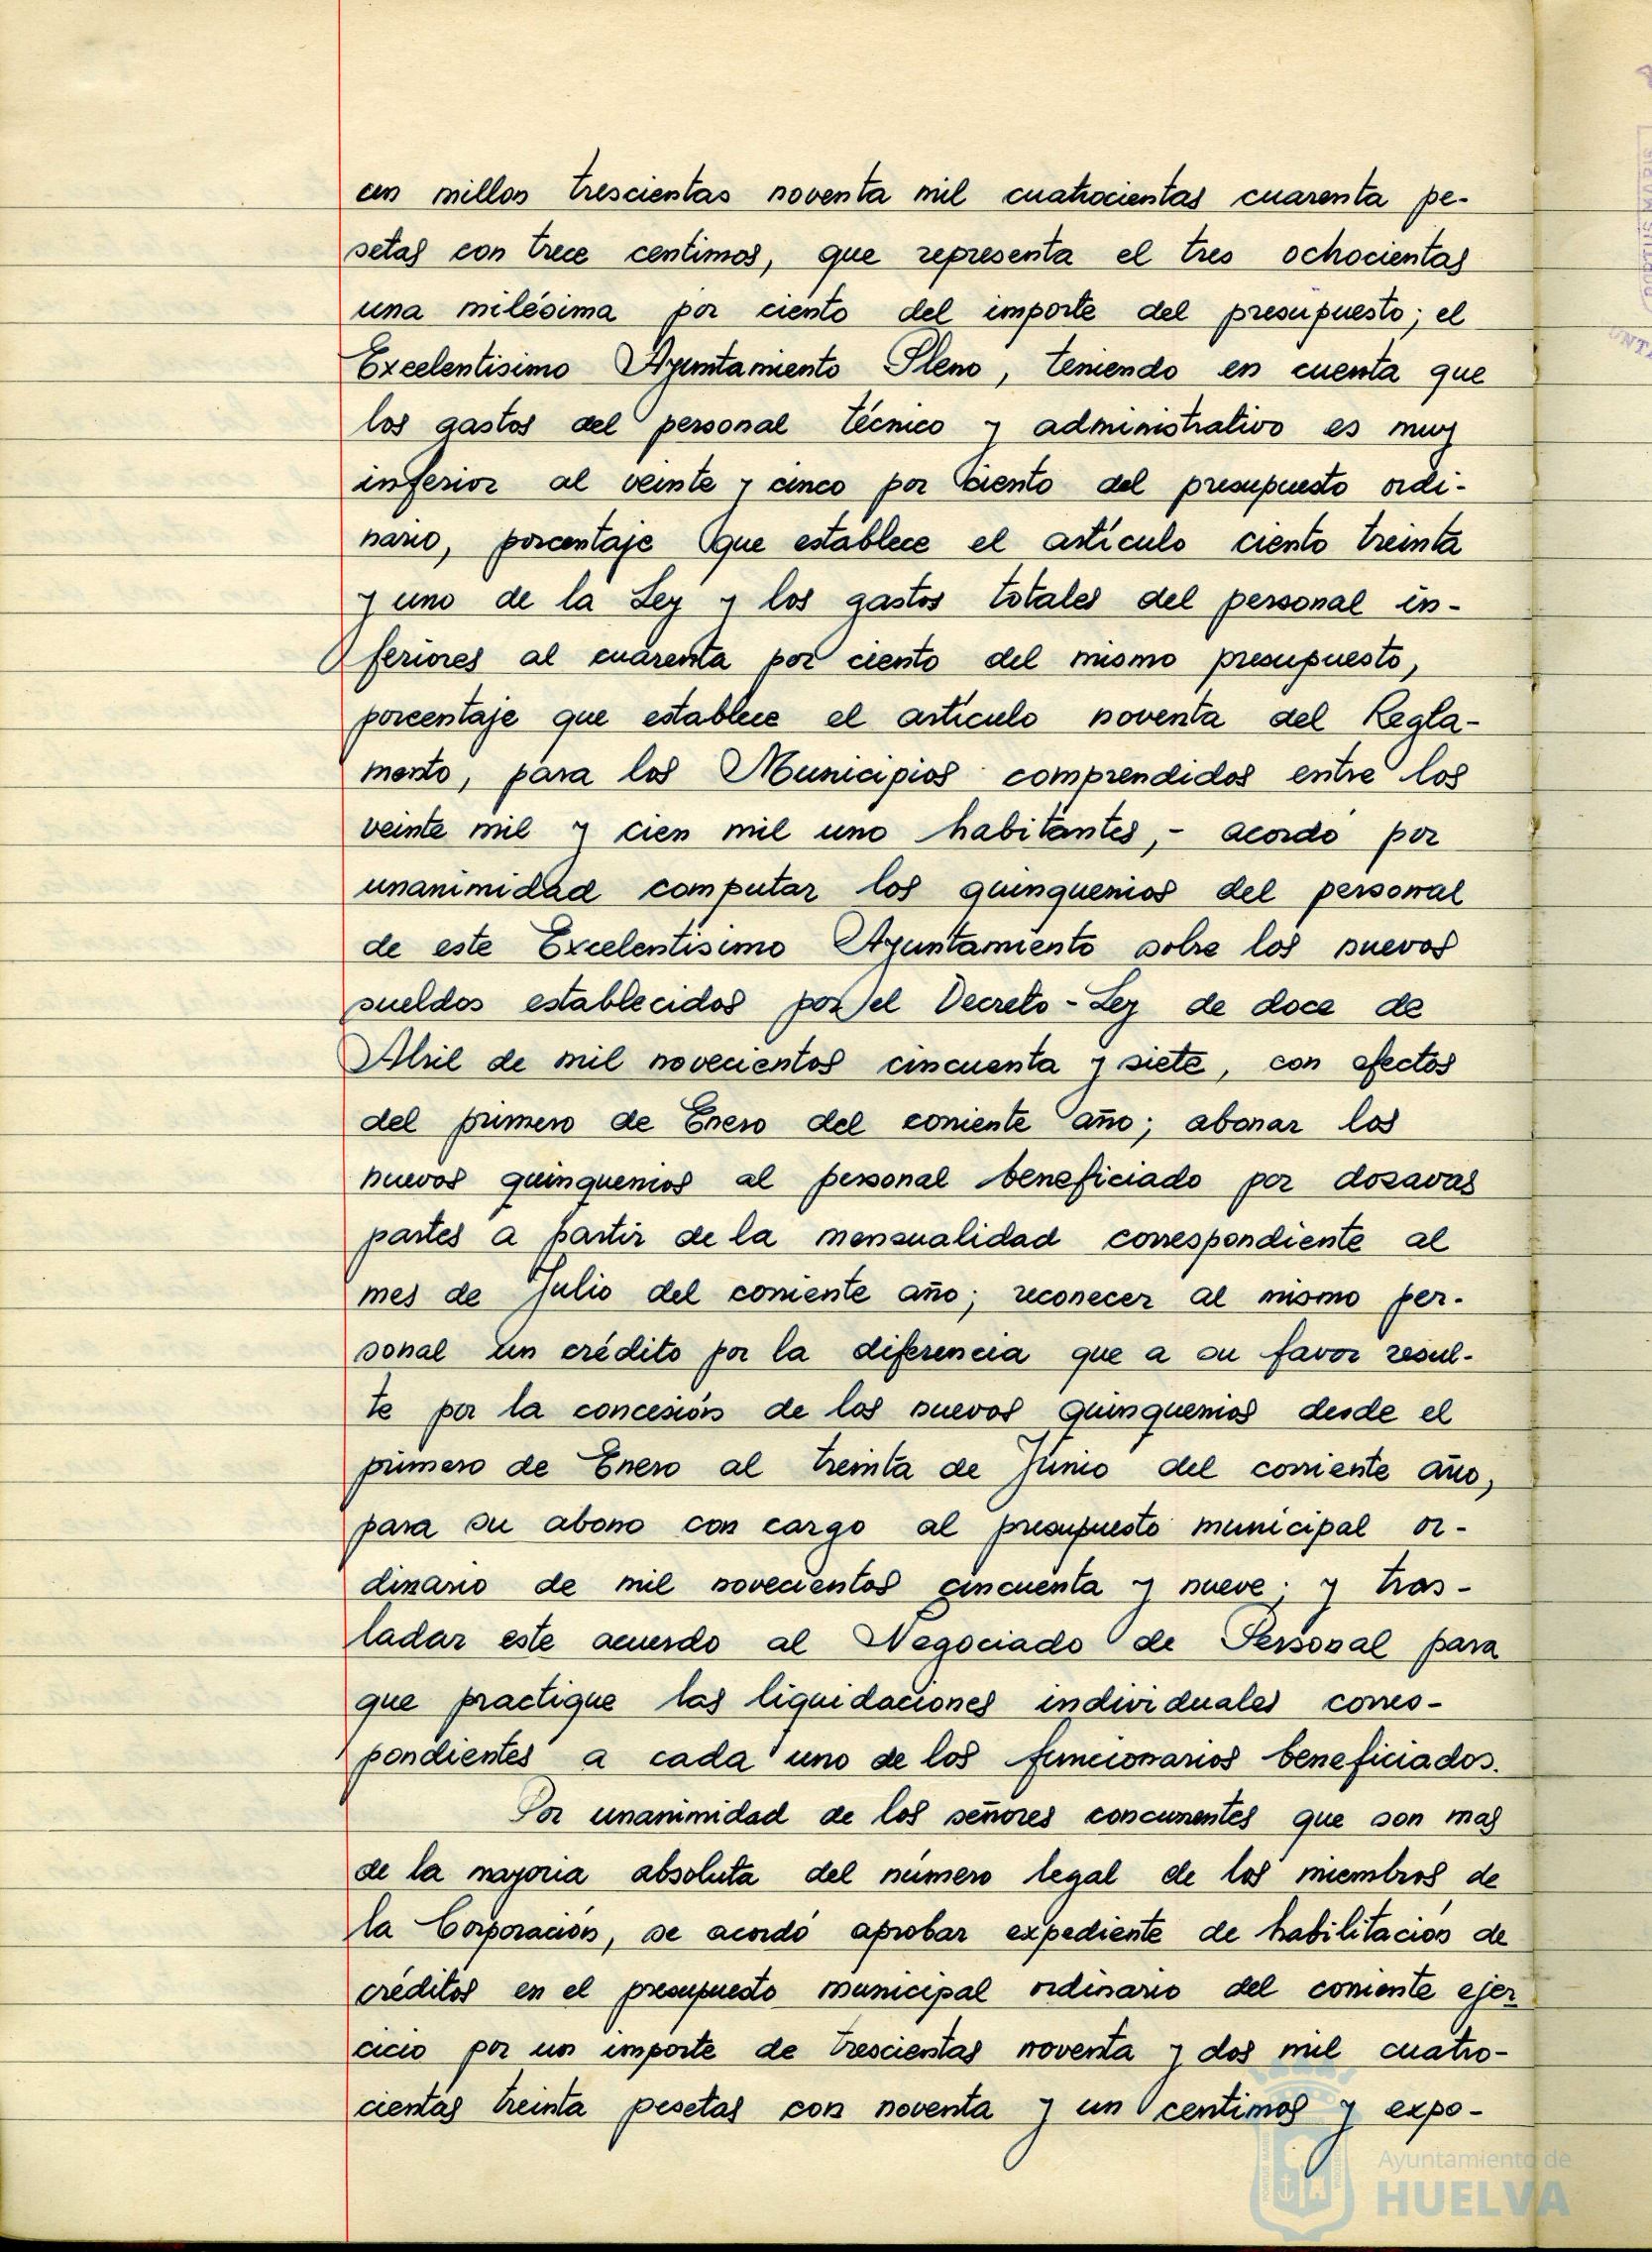 un millon trescientas noventa mil cuatrocientas cuarenta pe-
setas con trece centimos, que representa el tres ochocientas
una milésima por ciento del importe del presupuesto; el
Excelentisimo Ayuntamiento Pleno, teniendo en cuenta que
los gastos del personal técnico y administrativo es muy
inferior al veinte y cinco por ciento del presupuesto ordi-
nario, porcentaje que establece el artículo ciento treinta
y uno de la Ley y los gastos totales del personal in-
feriores al cuarenta por ciento del mismo presupuesto,
porcentaje que establece el artículo noventa del Regla-
mento, para los Municipios comprendidos entre los
veinte mil y cien mil uno habitantes,- acordó por
unanimidad computar los quinquenios del personal
de este Excelentisimo Ayuntamiento sobre los nuevos
sueldos establecidos por el Decreto-Ley de doce de
Abril de mil novecientos cincuenta y siete, con efectos
del primero de Enero del corriente año; abonar los
nuevos quinquenios al personal beneficiado por dozavas
partes a partir de la mensualidad correspondiente al
mes de Julio del corriente año; reconecer al mismo per-
sonal un crédito por la diferencia que a su favor resul-
te por la concesión de los nuevos quinquenios desde el
primero de Enero al treinta de Junio del corriente año,
para su abono con cargo al presupuesto municipal or-
dinario de mil novecientos cincuenta y nueve; y tras-
ladar este acuerdo al Negociado de Personal para
que practique las liquidaciones individuales corres-
pondientes a cada uno de los funcionarios beneficiados.
Por unanimidad de los señores concurrentes que son mas
de la mayoria absoluta del número legal de los miembros de
la Corporación, se acordó aprobar expediente de habilitación de
créditos en el presupuesto municipal ordinario del corriente ejer
cicio por un importe de trescientas noventa y dos mil cuatro-
cientas treinta pesetas con noventa y un centimos y expo-
Ayuntamiento de
HUELVA